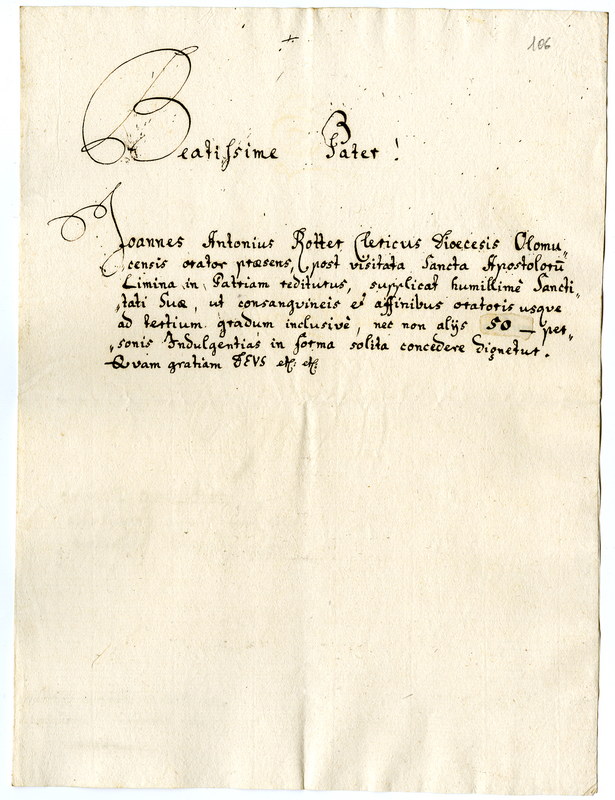 106
Beatissime Pater!
Joannes Antonius Rotter Clericus Diœcesis Olomu„
censis orator præsens, post visitata Sancta Apostolorū
Limina in Patriam rediturus, supplicat humillimè Sancti„
„tati Suæ, ut consangvineis et affinibus oratoris usque
ad tertium gradum inclusivè, nec non alijs 50 — per„
„sonis Indulgentias in forma solita concedere dignetur.
Quam gratiam DEVS etc: etc: